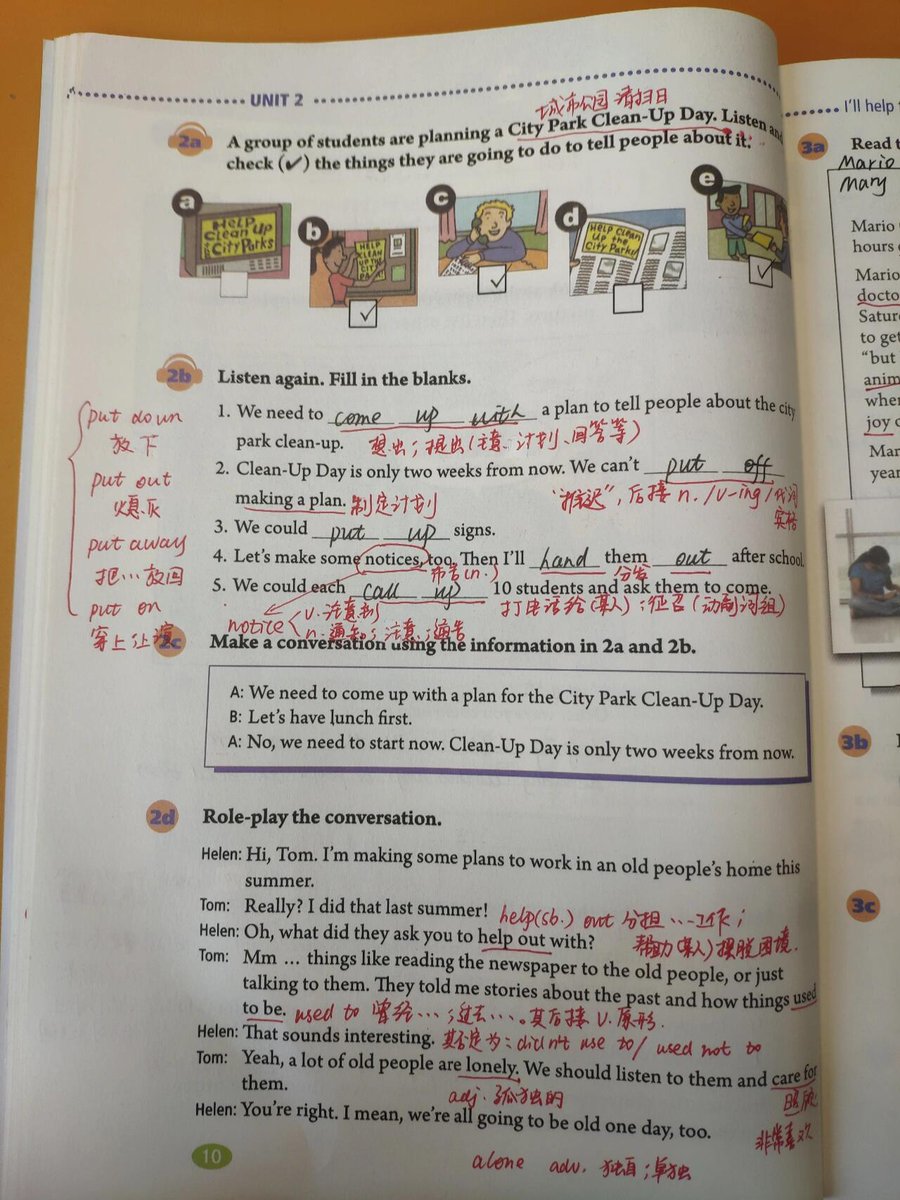 UNIT 2
城市公园清扫日
2a A group of students are planning a City Park Clean-Up Day. Listen and
check (✓) the things they are going to do to tell people about it.
a
HELP
Clean UP
City Parks
b
HELP
CLEAN UP
THE CITY
c
d
HELP CLEAN
UP the
City Parks!
e
2b Listen again. Fill in the blanks.
1. We need to come up with a plan to tell people about the city
park clean-up. 想出;提出(主意、计划、回答等)
2. Clean-Up Day is only two weeks from now. We can't put off
making a plan. 制定计划 "推迟", 后接 n. / v-ing / 代词
宾格
3. We could put up signs.
4. Let's make some notices, too. Then I'll hand them out after school.
布告(n.) 分发
5. We could each call up 10 students and ask them to come.
打电话给(某人);征召(动副词组)
notice v. 注意到
n. 通知;注意;通告
put down
放下
put out
熄灭
put away
把…放回
put on
穿上;上演
2c Make a conversation using the information in 2a and 2b.
A: We need to come up with a plan for the City Park Clean-Up Day.
B: Let's have lunch first.
A: No, we need to start now. Clean-Up Day is only two weeks from now.
2d Role-play the conversation.
Helen: Hi, Tom. I'm making some plans to work in an old people's home this
summer.
Tom: Really? I did that last summer! help(sb.) out 分担…工作;
Helen: Oh, what did they ask you to help out with? 帮助(某人)摆脱困境.
Tom: Mm … things like reading the newspaper to the old people, or just
talking to them. They told me stories about the past and how things used
to be. used to 曾经…;过去…。其后接 v. 原形.
Helen: That sounds interesting. 其否定为: didn't use to / used not to
Tom: Yeah, a lot of old people are lonely. We should listen to them and care for
them. adj. 孤独的 照顾;
非常喜欢
Helen: You're right. I mean, we're all going to be old one day, too.
alone adv. 独自;单独
10
I'll help
3a Read t
Mario
Mary
Mario
hours
Mario
docto
Satur
to get
"but
anim
when
joy
Mar
year
3b
3c